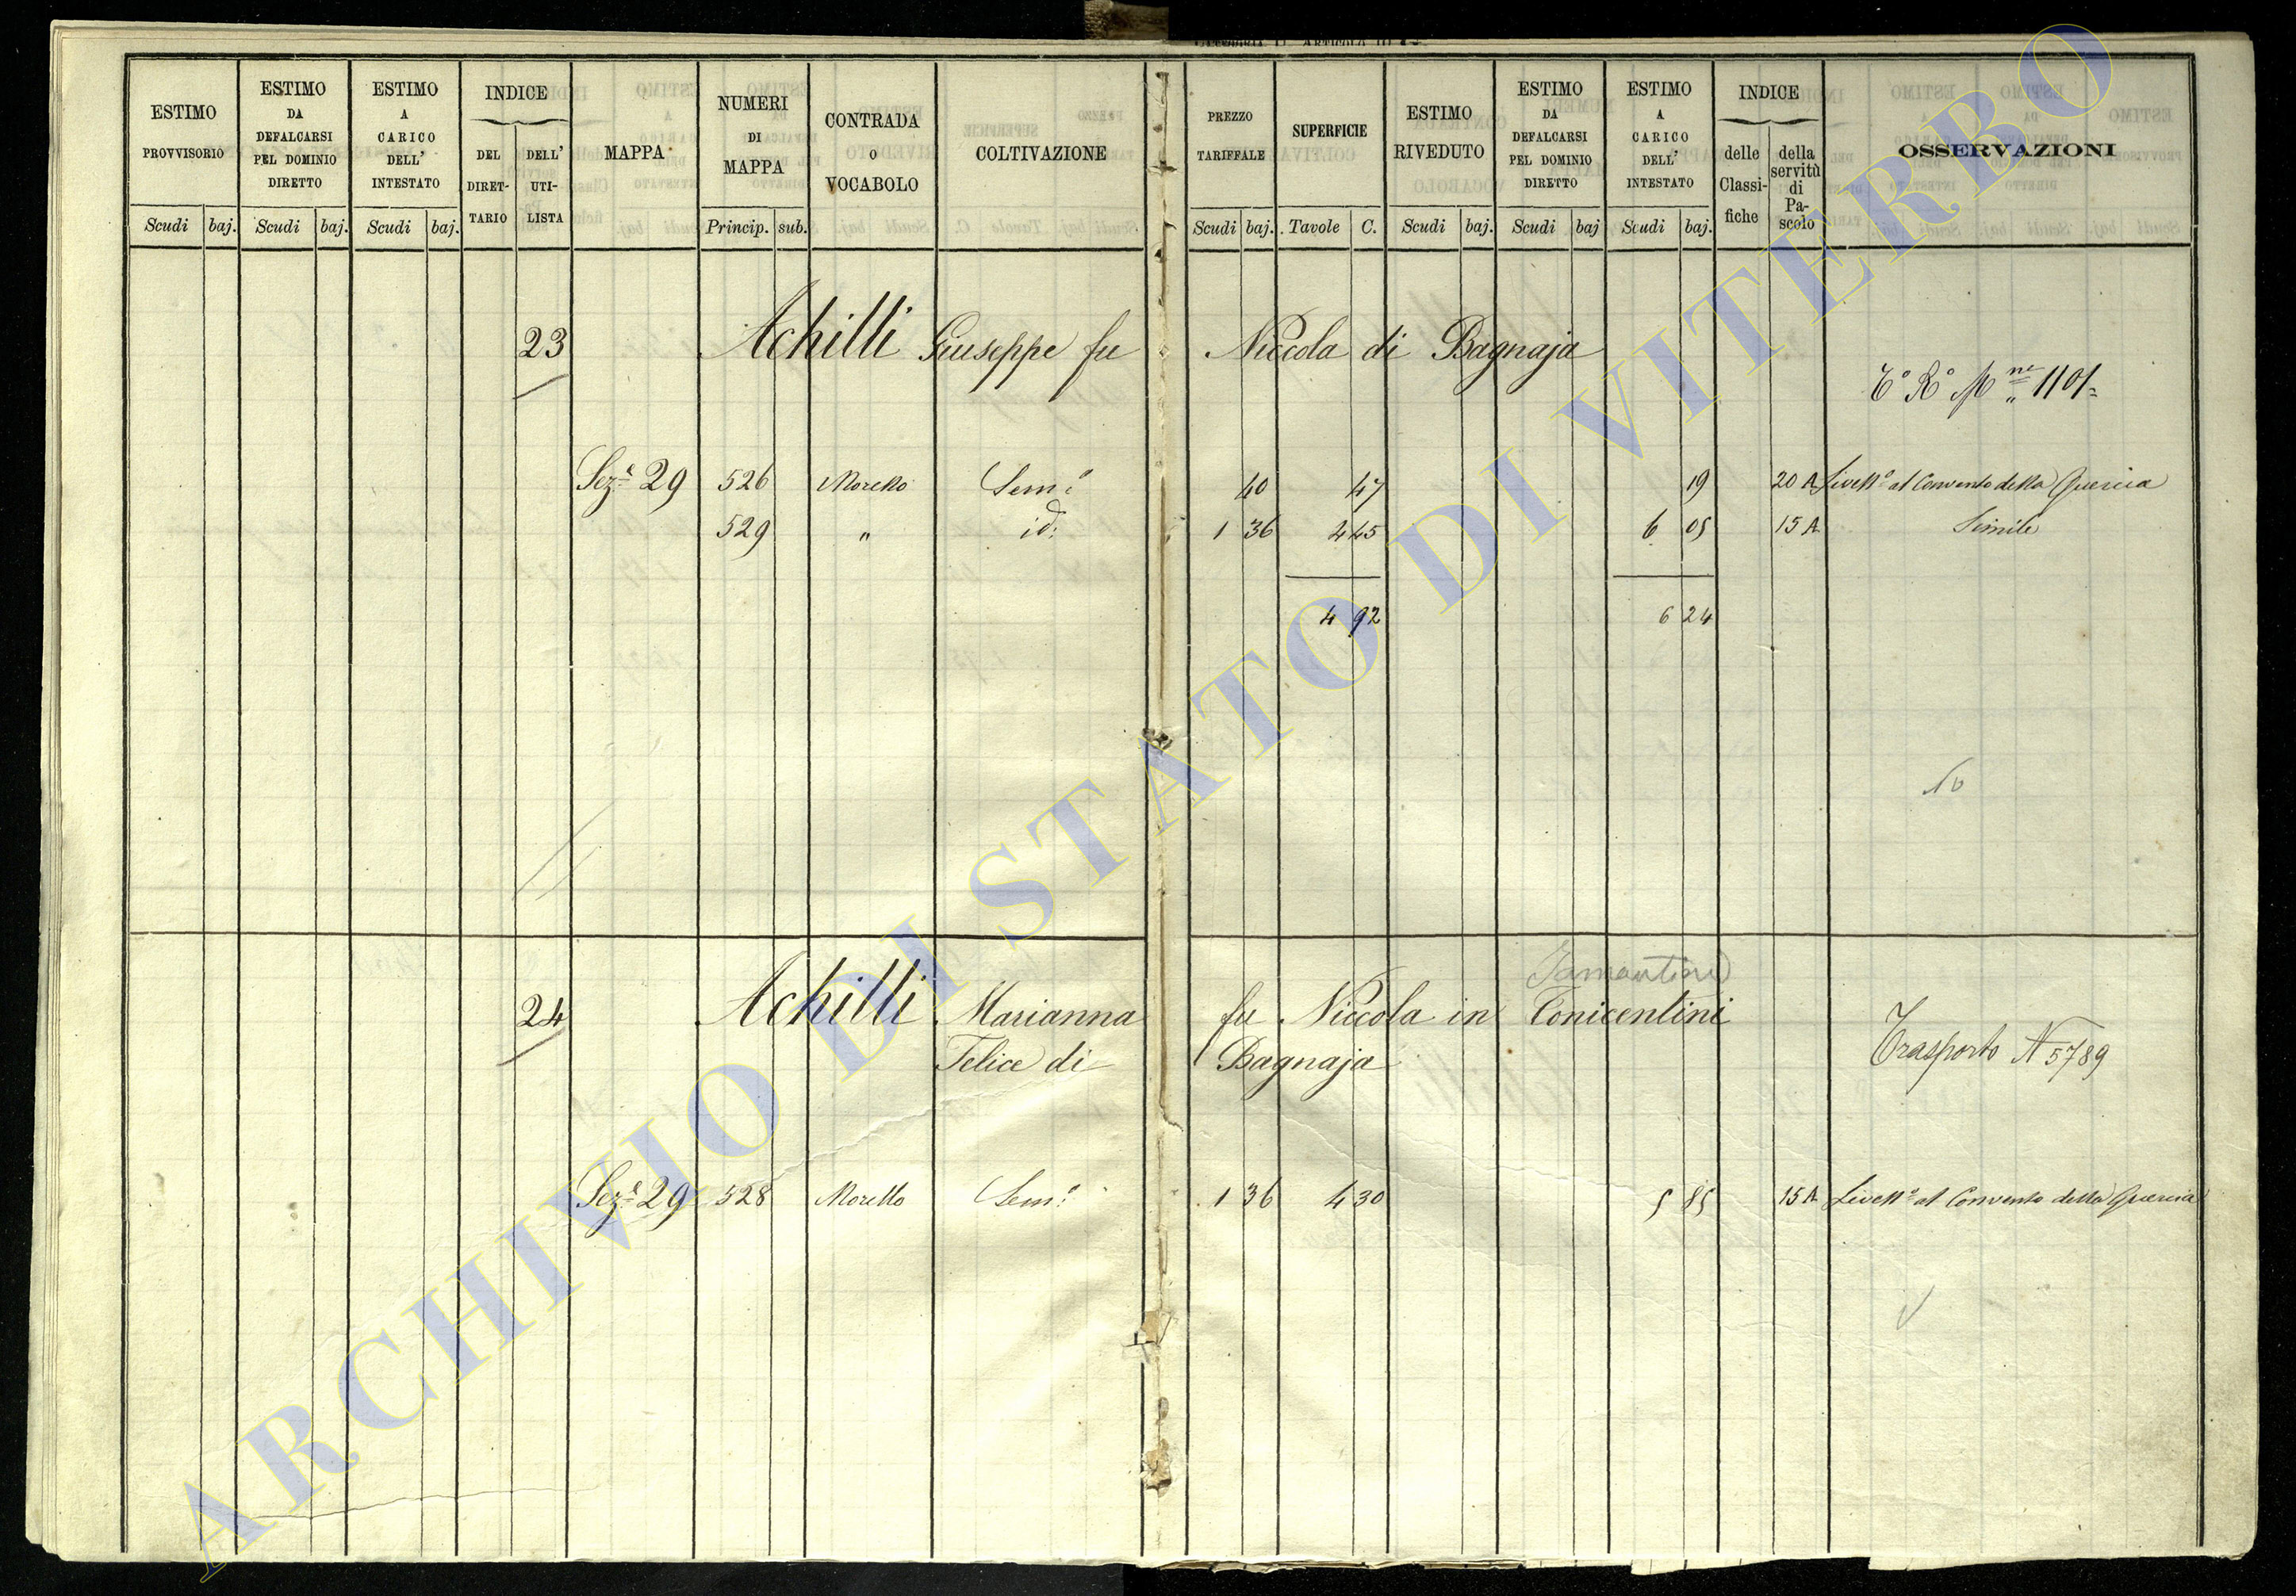 ESTIMO PROVVISORIO
Scudi baj.
ESTIMO DA DEFALCARSI PEL DOMINIO DIRETTO
Scudi baj.
ESTIMO A CARICO DELL' INTESTATO
Scudi baj.
INDICE
DEL DIRET-TARIO
DELL' UTI-LISTA
MAPPA
NUMERI DI MAPPA
Princip. sub.
CONTRADA O VOCABOLO
COLTIVAZIONE
PREZZO TARIFFALE
Scudi baj.
SUPERFICIE
Tavole C.
ESTIMO RIVEDUTO
Scudi baj.
ESTIMO DA DEFALCARSI PEL DOMINIO DIRETTO
Scudi baj
ESTIMO A CARICO DELL' INTESTATO
Scudi baj.
INDICE
delle Classi-fiche
della servitù di Pa-scolo
OSSERVAZIONI
23 Achilli Giuseppe fu Niccola di Bagnaja
1101
Sez.e 29 526 Morello Sem.o 40 47 19 20 A Livell.o al Convento della Quercia
529 " id: 1 36 4 45 6 05 15 A Simile
4 92 6 24
24 Achilli Marianna fu Niccola in Tonicentini
Felice di Bagnaja
Trasporto N 5789
Sez.e 29 528 Morello Sem.o 1 36 4 30 5 85 15 A Livell.o al Convento della Quercia
ARCHIVIO DI STATO DI VITERBO